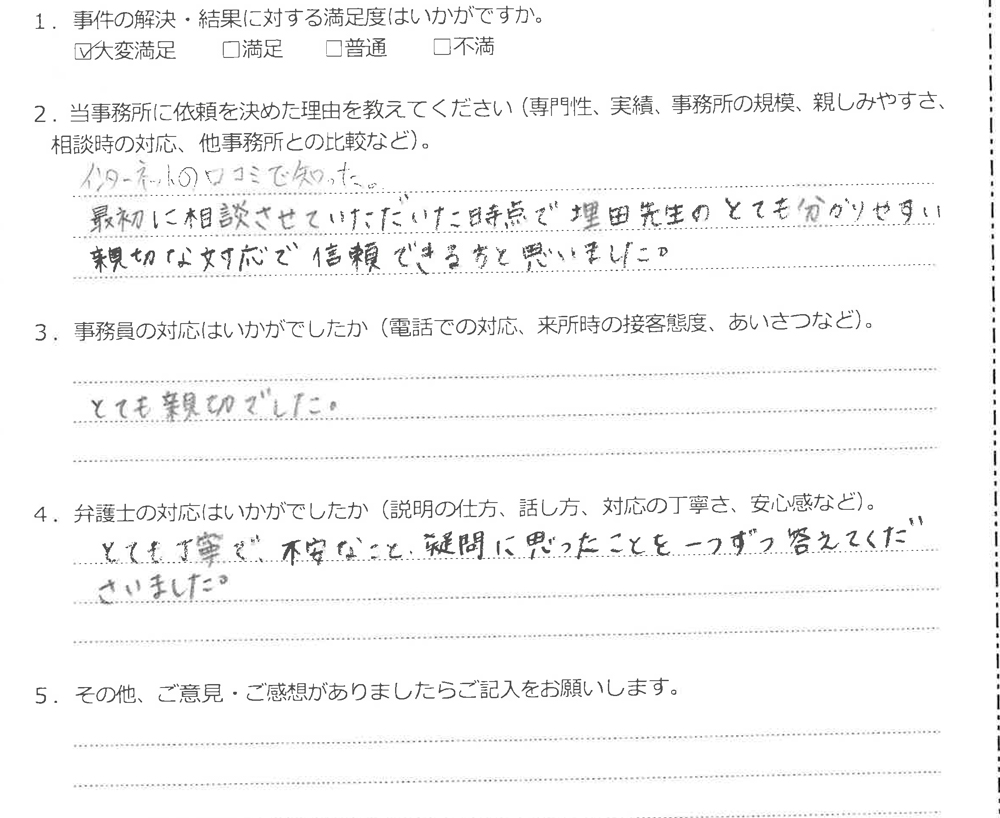 1. 事件の解決・結果に対する満足度はいかがですか。
☑大変満足 □満足 □普通 □不満
2. 当事務所に依頼を決めた理由を教えてください（専門性、実績、事務所の規模、親しみやすさ、
相談時の対応、他事務所との比較など）。
インターネットの口コミで知った。
最初に相談させていただいた時点で埋田先生のとても分かりやすい
親切な対応で信頼できる方と思いました。
3. 事務員の対応はいかがでしたか（電話での対応、来所時の接客態度、あいさつなど）。
とても親切でした。
4. 弁護士の対応はいかがでしたか（説明の仕方、話し方、対応の丁寧さ、安心感など）。
とても丁寧で、不安なこと、疑問に思ったことを一つずつ答えてくだ
さいました。
5. その他、ご意見・ご感想がありましたらご記入をお願いします。